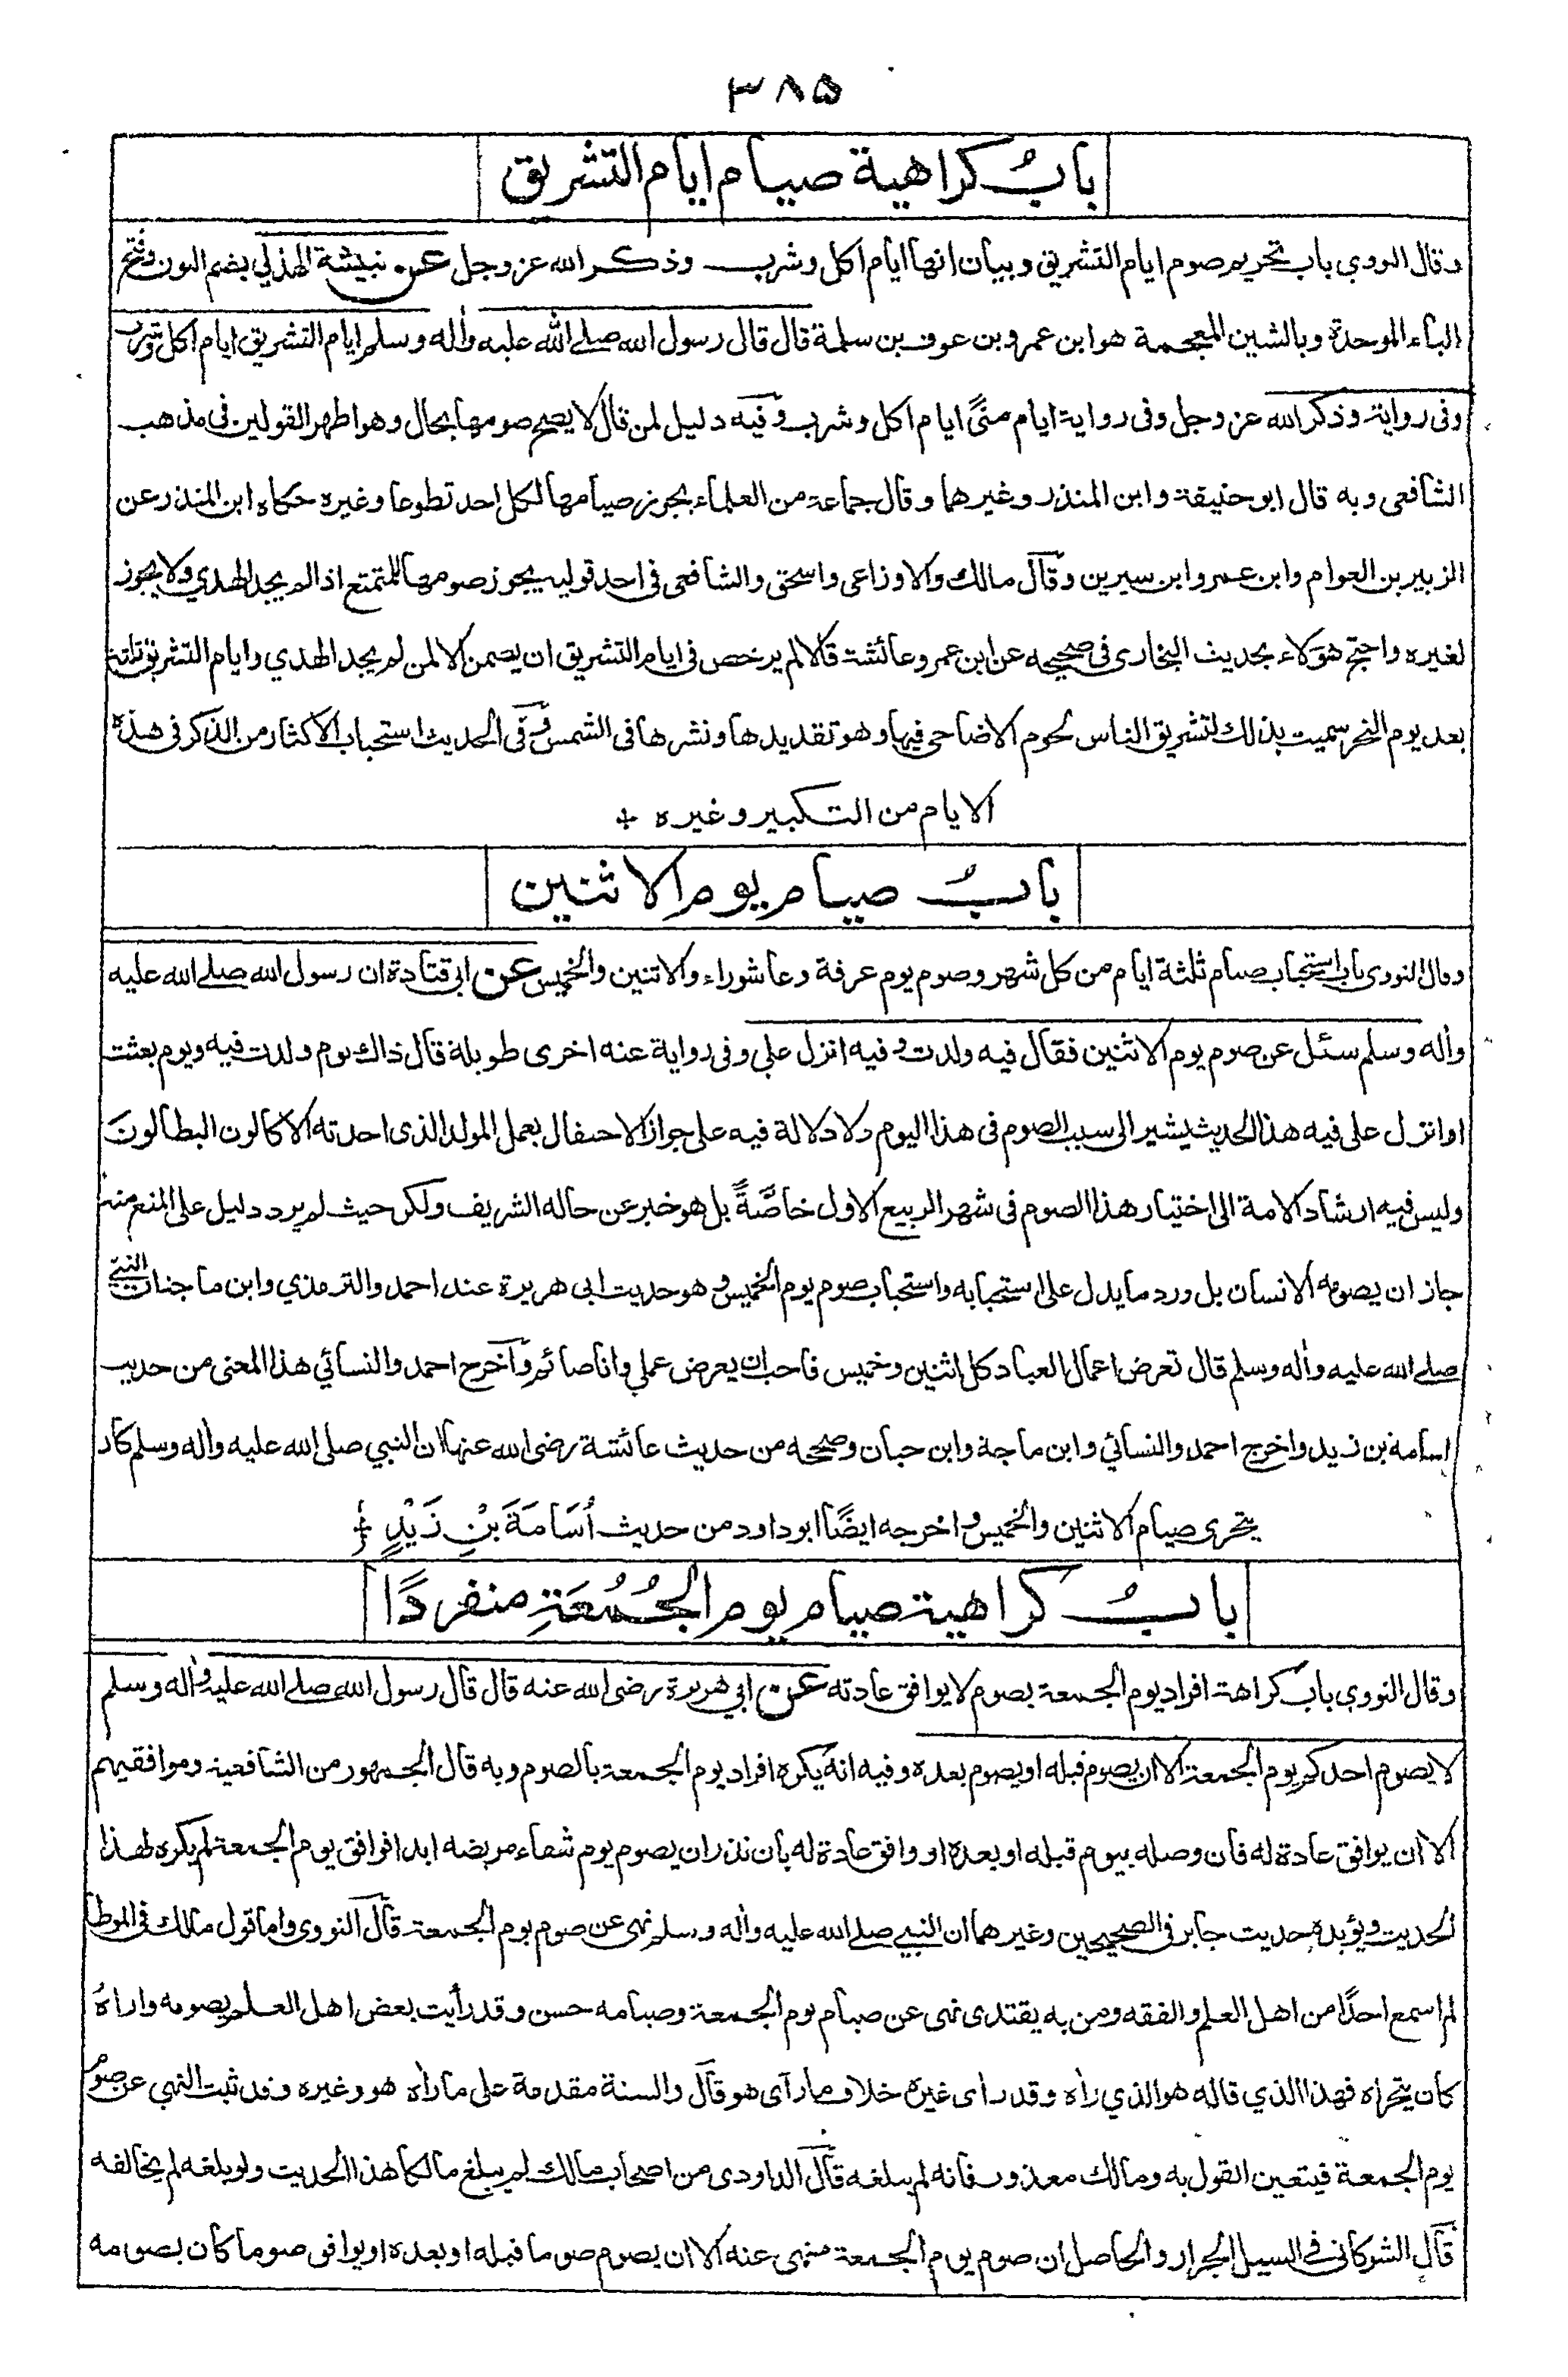 ٣٨۵
بابُ كراهية صيام ايام التشريق
وقال النووي باب تحريم صوم ايام التشريق وبيان انها ايام اكل وشرب وذكر الله عز وجل عن نبيشة الهذلي بضم النون وفتح
الباء الموحدة وبالشين المعجمة هو ابن عمرو بن عوف بن سلمة قال قال رسول الله صلے الله عليه واٰله وسلم ايام التشريق ايام اكل وشرب
وفي رواية وذكر الله عز وجل وفي رواية ايام منًى ايام اكل وشرب وفيه دليل لمن قال لا يصح صومها بحال وهو اظهر القولين في مذهب
الشافعي وبه قال ابو حنيفة وابن المنذر وغيرهما وقال جماعة من العلماء يجوز صيامها لكل احد تطوعا وغيره حكاه ابن المنذر عن
الزبير بن العوام وابن عمر وابن سيرين وقال مالك والاوزاعى واسحٰق والشافعى في احد قوليه يجوز صومها للمتمتع اذا لم يجد الهدي ولا يجوز
لغيره واحتج هؤلاء بحديث البخارى في صحيحه عن ابن عمر وعائشة قالا لم يرخص في ايام التشريق ان يصمن الا لمن لم يجد الهدي وايام التشريق ثلثة
بعد يوم النحر سميت بذلك لتشريق الناس لحوم الاضاحى فيها وهو تقديدها ونشرها في الشمس وفي الحديث استحباب الاكثار من الذكر في هذه
الايام من التكبير وغيره +
بابُ صيام يوم الاثنين
وقال النووى باب استحباب صيام ثلثة ايام من كل شهر وصوم يوم عرفة وعاشوراء والاثنين والخميس عن ابي قتادة ان رسول الله صلے الله عليه
واٰله وسلم سئل عن صوم يوم الاثنين فقال فيه ولدت وفيه انزل علي وفي رواية عنه اخرى طويلة قال ذاك يوم ولدت فيه ويوم بعثت
او انزل علي فيه هذا الحديث يشير الى سبب الصوم في هذا اليوم ولا دلالة فيه على جواز الاحتفال بعمل المولد الذى احدثه الاكالون البطالون
وليس فيه ارشاد الامة الى اختيار هذا الصوم في شهر الربيع الاول خاصَّةً بل هو خبر عن حاله الشريف ولكن حيث لم يرد دليل على المنع منه
جاز ان يصومه الانسان بل ورد ما يدل على استحبابه واستحباب صوم يوم الخميس وهو حديث ابي هريرة عند احمد والترمذي وابن ماجة ان النبي
صلے الله عليه واٰله وسلم قال تعرض اعمال العباد كل اثنين وخميس فاحب ان يعرض عملي وانا صائم واخرج احمد والنسائي هذا المعنى من حديث
اسامة بن زيد واخرج احمد والنسائي وابن ماجة وابن حبان وصححه من حديث عائشة رضى الله عنها ان النبي صلى الله عليه واٰله وسلم كان
يتحرى صيام الاثنين والخميس واخرجه ايضًا ابو داود من حديث اُسَامَةَ بْنِ زَيْدٍ +
بابُ كراهية صيام يوم الجُمُعَةِ منفردًا
وقال النووي باب كراهة افراد يوم الجمعة بصوم لا يوافق عادته عن ابي هريرة رضى الله عنه قال قال رسول الله صلے الله عليه واٰله وسلم
لا يصوم احدكم يوم الجمعة الا ان يصوم قبله او يصوم بعده وفيه انه يكره افراد يوم الجمعة بالصوم وبه قال الجمهور من الشافعية وموافقيهم
الا ان يوافق عادة له فان وصله بيوم قبله او بعده او وافق عادة له بان نذر ان يصوم يوم شفاء مريضه ابدا فوافق يوم الجمعة لم يكره لهذا
الحديث ويؤيده حديث جابر في الصحيحين وغيرهما ان النبي صلے الله عليه واٰله وسلم نهى عن صوم يوم الجمعة قال النووى واما قول مالك في الموطأ
لم اسمع احدًا من اهل العلم والفقه ومن به يقتدى نهى عن صيام يوم الجمعة وصيامه حسن وقد رأيت بعض اهل العلم يصومه واراهُ
كان يتحراه فهذا الذي قاله هو الذي راٰه وقد راى غيره خلاف ما رآى هو قال والسنة مقدمة على ما راٰه هو وغيره وقد ثبت النهي عن صوم
يوم الجمعة فيتعين القول به ومالك معذور فانه لم يبلغه قال الداودى من اصحاب مالك لم يبلغ مالكا هذا الحديث ولو بلغه لم يخالفه
قال الشوكاني في السيل الجرار والحاصل ان صوم يوم الجمعة منهى عنه الا ان يصوم صوما قبله او بعده او يوافق صوما كان يصومه